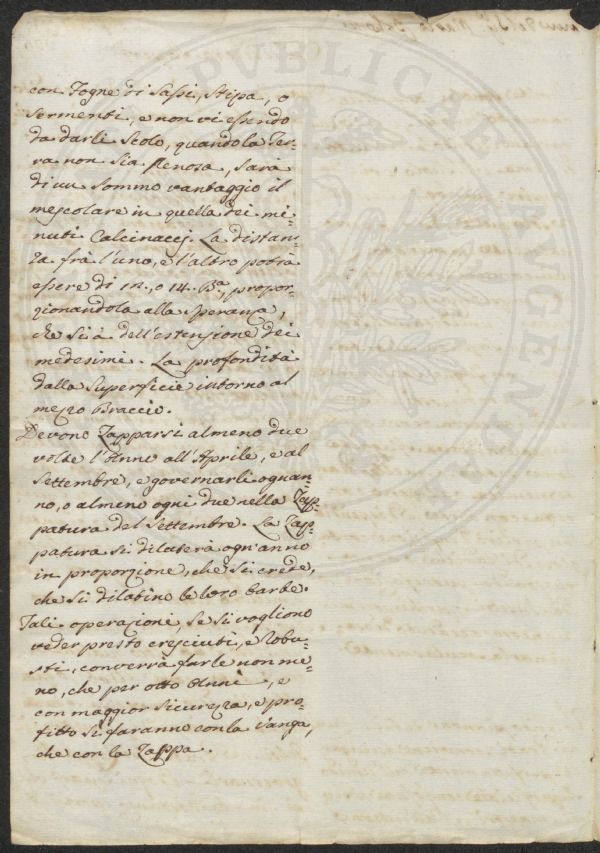 con Fogne di Sassi, Stipa, o
Sermenti, e non vi essendo
da darli Scolo, quando la Ter-
ra non sia renosa, sarà
di un sommo vantaggio il
mescolare in quella dei mi-
nuti Calcinacci. La distan-
za frà l'uno, e l'altro potrà
essere di 12., o 14. B.a, propor-
zionandola alla Speranza,
che si à dell'estensione dei
medesimi. La profondità
dalla Superficie intorno al
mezzo Braccio.
Devono Zapparsi almeno due
volte l'Anno all'Aprile, e al
Settembre, e governarli ognan-
no, o almeno ogni due nella Zap-
patura del Settembre. La Zap-
patura si dilaterà ogn'anno
in proporzione, che si crede,
che si dilatino le loro barbe.
Tali operazioni, se si vogliono
veder presto cresciuti, e Robu-
sti, converrà farle non me-
no, che per otto Anni, e
con maggior sicurezza, e pro-
fitto si faranno con la Vanga,
che con la Zappa.
PVBLICAE AVGENDAE